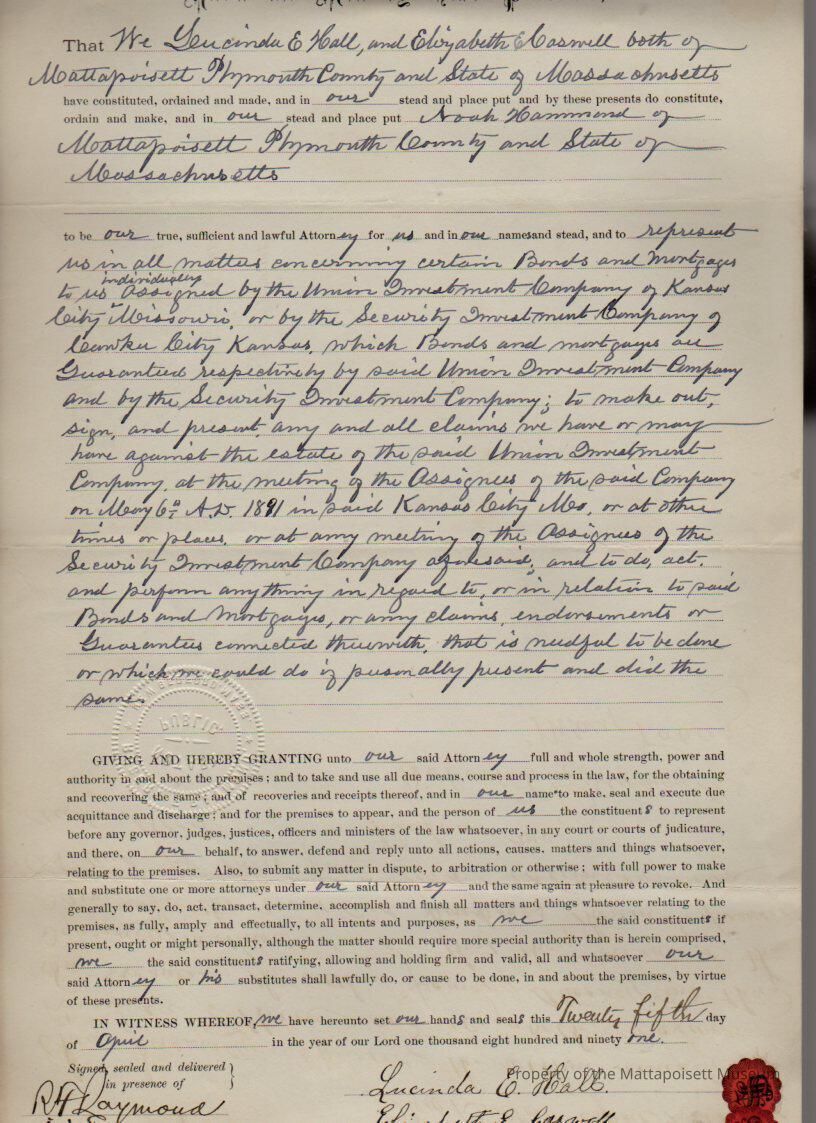 That We Lucinda E Hall, and Elizabeth E Caswell both of
Mattapoisett Plymouth County and State of Massachusetts
have constituted, ordained and made, and in our stead and place put and by these presents do constitute,
ordain and make, and in our stead and place put Noah Hammond of
Mattapoisett Plymouth County and State of
Massachusetts
to be our true, sufficient and lawful Attorney for us and in our names and stead, and to represent
us in all matters concerning certain Bonds and Mortgages
individually
to us assigned by the Union Investment Company of Kansas
City Missouri, or by the Security Investment Company of
Cawker City Kansas, which Bonds and mortgages are
Guaranteed respectively by said Union Investment Company
and by the Security Investment Company; to make out,
sign, and present, any and all claims we have or may
have against the estate of the said Union Investment
Company, at the meeting of the Assignees of the said Company
on May 6th A.D. 1891 in said Kansas City Mo, or at other
times or places, or at any meeting of the Assignees of the
Security Investment Company aforesaid, and to do, act,
and perform anything in regard to, or in relation to said
Bonds and Mortgages, or any claims, endorsements or
Guarantees connected therewith, that is needful to be done
or which we could do if personally present and did the
same.
PUBLIC
GIVING AND HEREBY GRANTING unto our said Attorney full and whole strength, power and
authority in and about the premises; and to take and use all due means, course and process in the law, for the obtaining
and recovering the same; and of recoveries and receipts thereof, and in our name to make, seal and execute due
acquittance and discharge; and for the premises to appear, and the person of us the constituents to represent
before any governor, judges, justices, officers and ministers of the law whatsoever, in any court or courts of judicature,
and there, on our behalf, to answer, defend and reply unto all actions, causes, matters and things whatsoever,
relating to the premises. Also, to submit any matter in dispute, to arbitration or otherwise; with full power to make
and substitute one or more attorneys under our said Attorney and the same again at pleasure to revoke. And
generally to say, do, act, transact, determine, accomplish and finish all matters and things whatsoever relating to the
premises, as fully, amply and effectually, to all intents and purposes, as we the said constituents if
present, ought or might personally, although the matter should require more special authority than is herein comprised,
we the said constituents ratifying, allowing and holding firm and valid, all and whatsoever our
said Attorney or his substitutes shall lawfully do, or cause to be done, in and about the premises, by virtue
of these presents.
IN WITNESS WHEREOF, we have hereunto set our hands and seals this Twenty fifth day
of April in the year of our Lord one thousand eight hundred and ninety one.
Signed, sealed and delivered
in presence of
Property of the Mattapoisett Museum
Lucinda E. Hall.
Raymond
Elizabeth E. Caswell